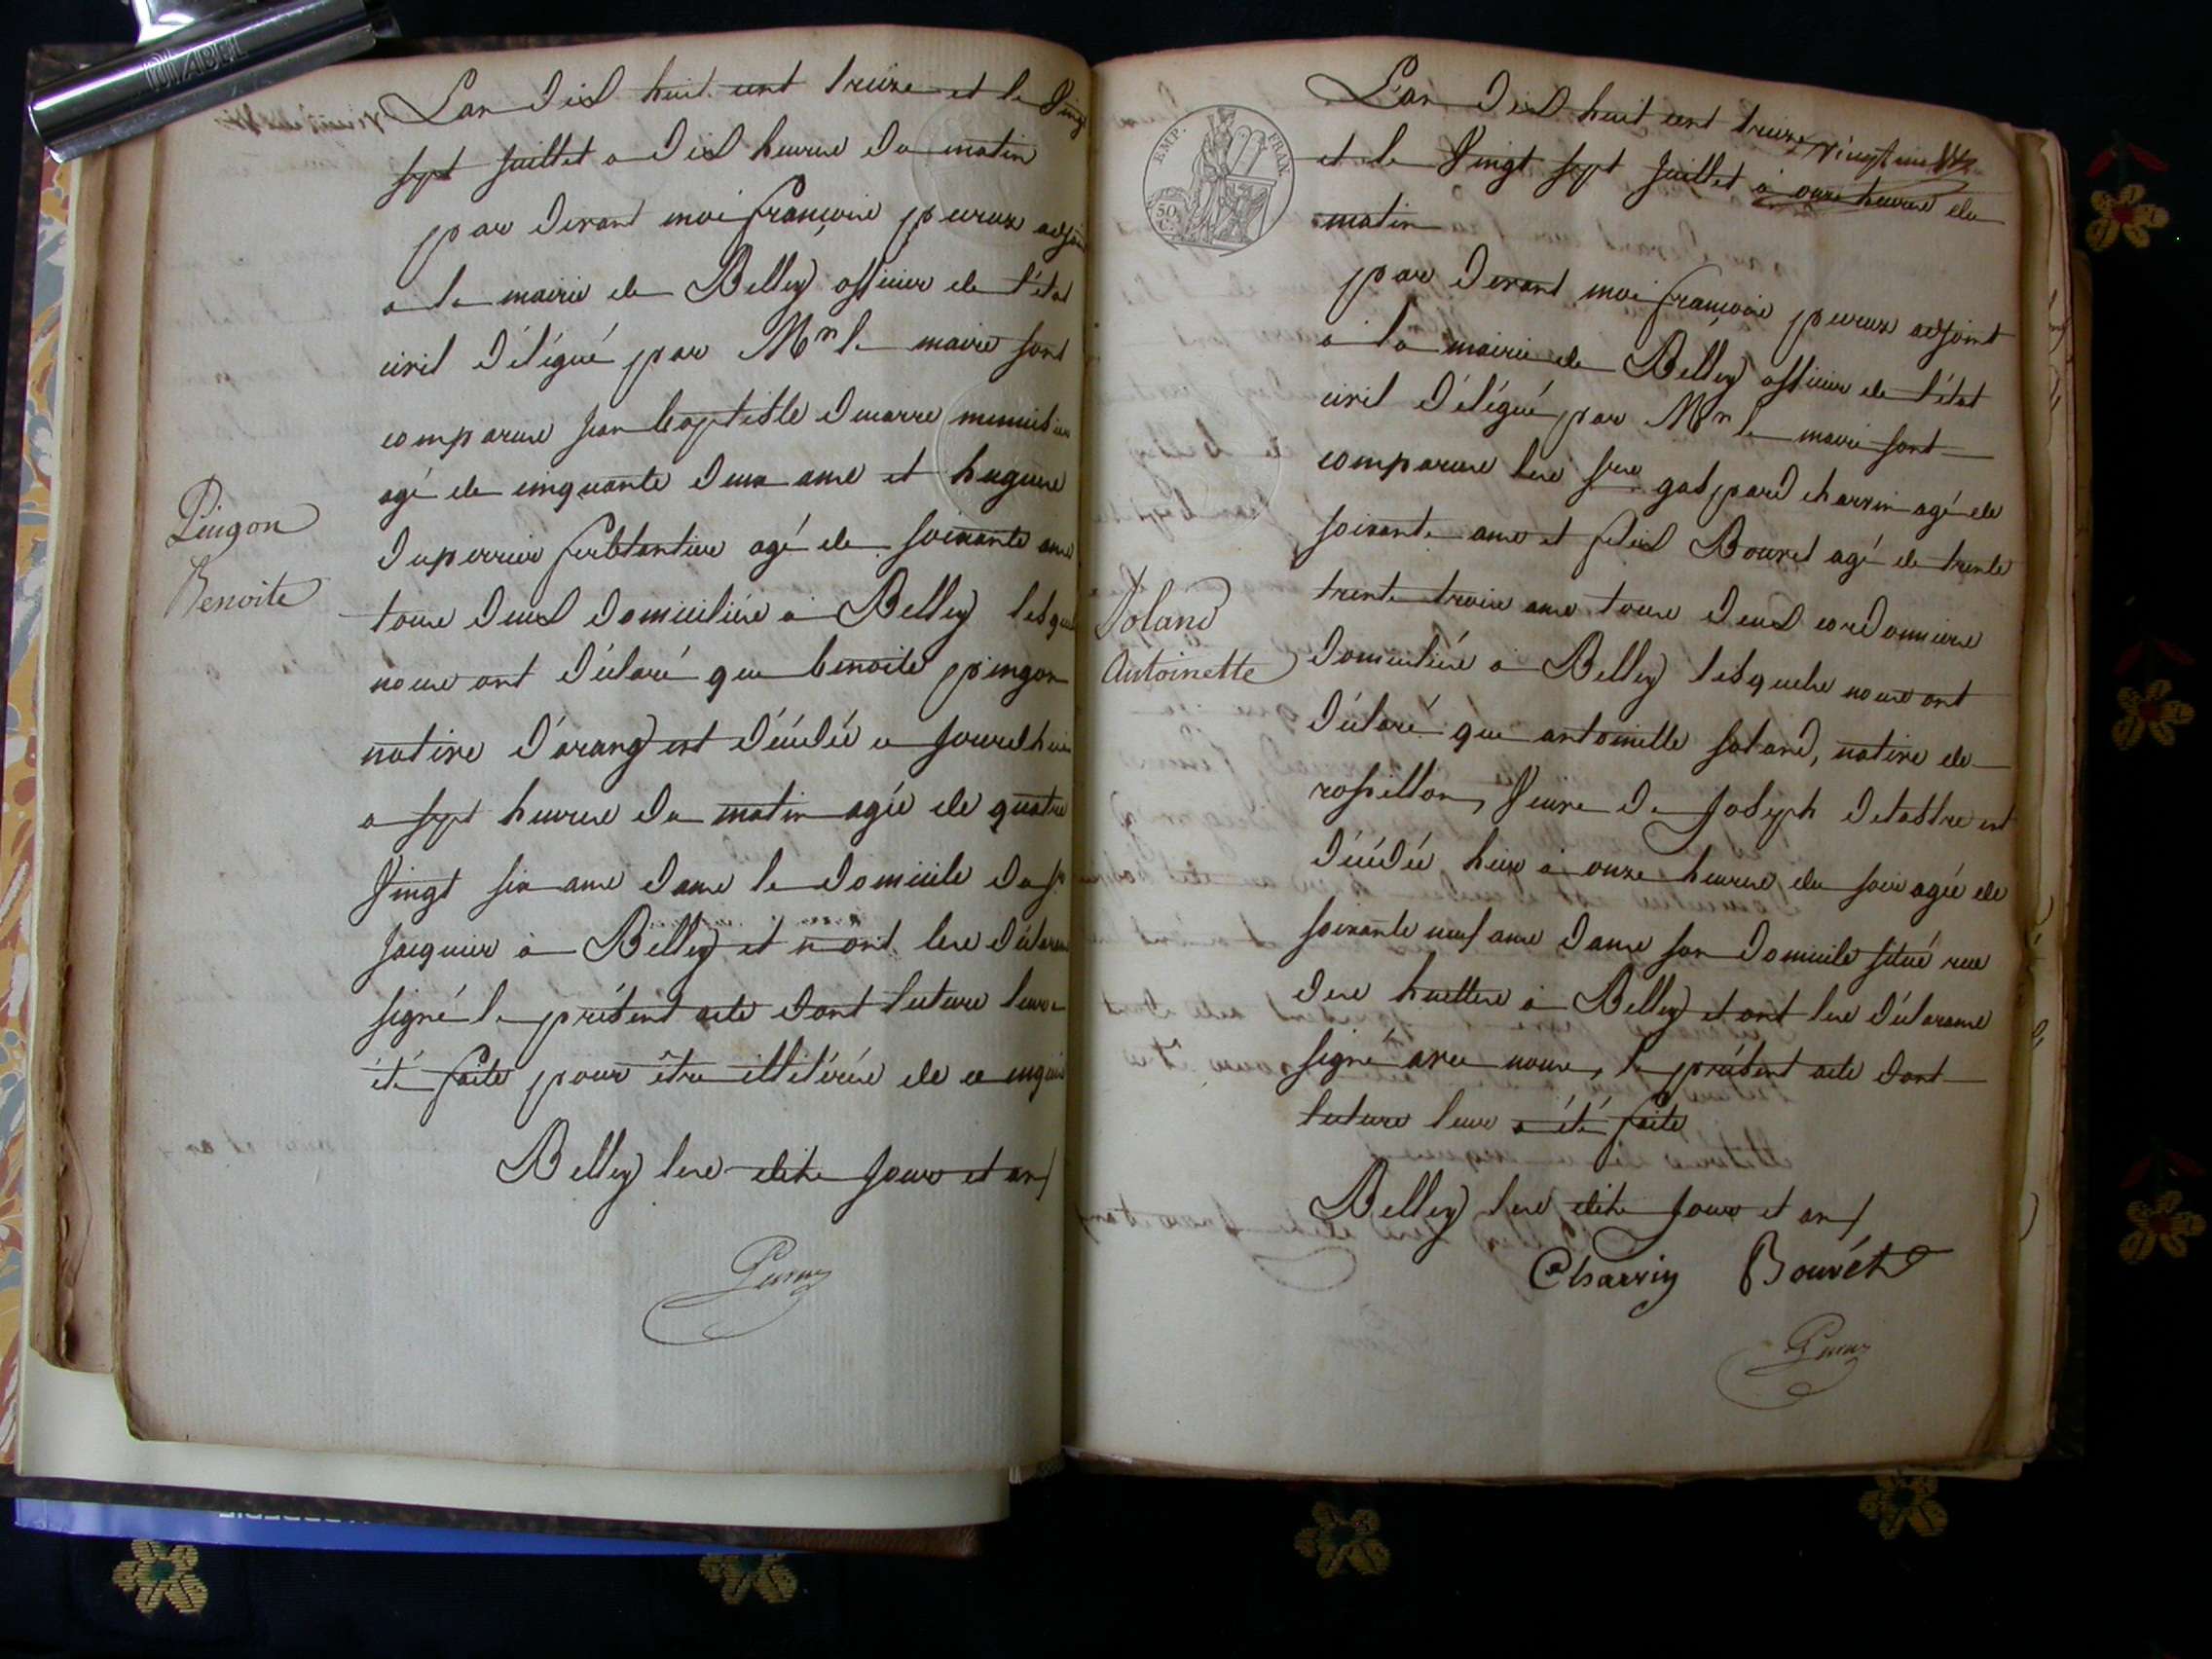 DIABEL
L'an dix huit cent treize et le vingt
sept juillet a dix heures du matin
par devant moi françois peruz adjoint
a la mairie de Belley officier de l'état
civil délégué par Mr le maire sont
comparus jean baptiste menuisier
agé de cinquante deux ans et hugues
duperrier ferblantier agé de soixante ans
tous deux domiciliés à Belley lesquels
nous ont déclaré que benoite pingon
native d'arang est décédée ce jourd'hui
a sept heures du matin agée de quatre
vingt six ans dans le domicile du sr
jacquier à Belley et n'ont les déclarans
signé le présent acte dont lecture leur a
été faite pour être illitérés de ce enquis
Belley les dits jour et an
Peruz
Pingon
Benoite
EMP. FRAN.
50 C.
L'an dix huit cent treize
et le vingt sept juillet à onze heures du
matin
par devant moi françois peruz adjoint
à la mairie de Belley officier de l'état
civil délégué par Mr le maire sont
comparus les srs gaspard charvin agé de
soixante ans et felix Bouvet agé de trente
trente trois ans tous deux cordonniers
domiciliés à Belley lesquels nous ont
déclaré que antoinette joland, native de
rossillon, veuve de Joseph delastre est
décédée hier à onze heures du soir agée de
soixante neuf ans dans son domicile situé rue
des à Belley et ont les déclarans
signé avec nous, le présent acte dont
lecture leur a été faite
Belley les dits jour et an
Charvin Bouvét
Peruz
Joland
Antoinette